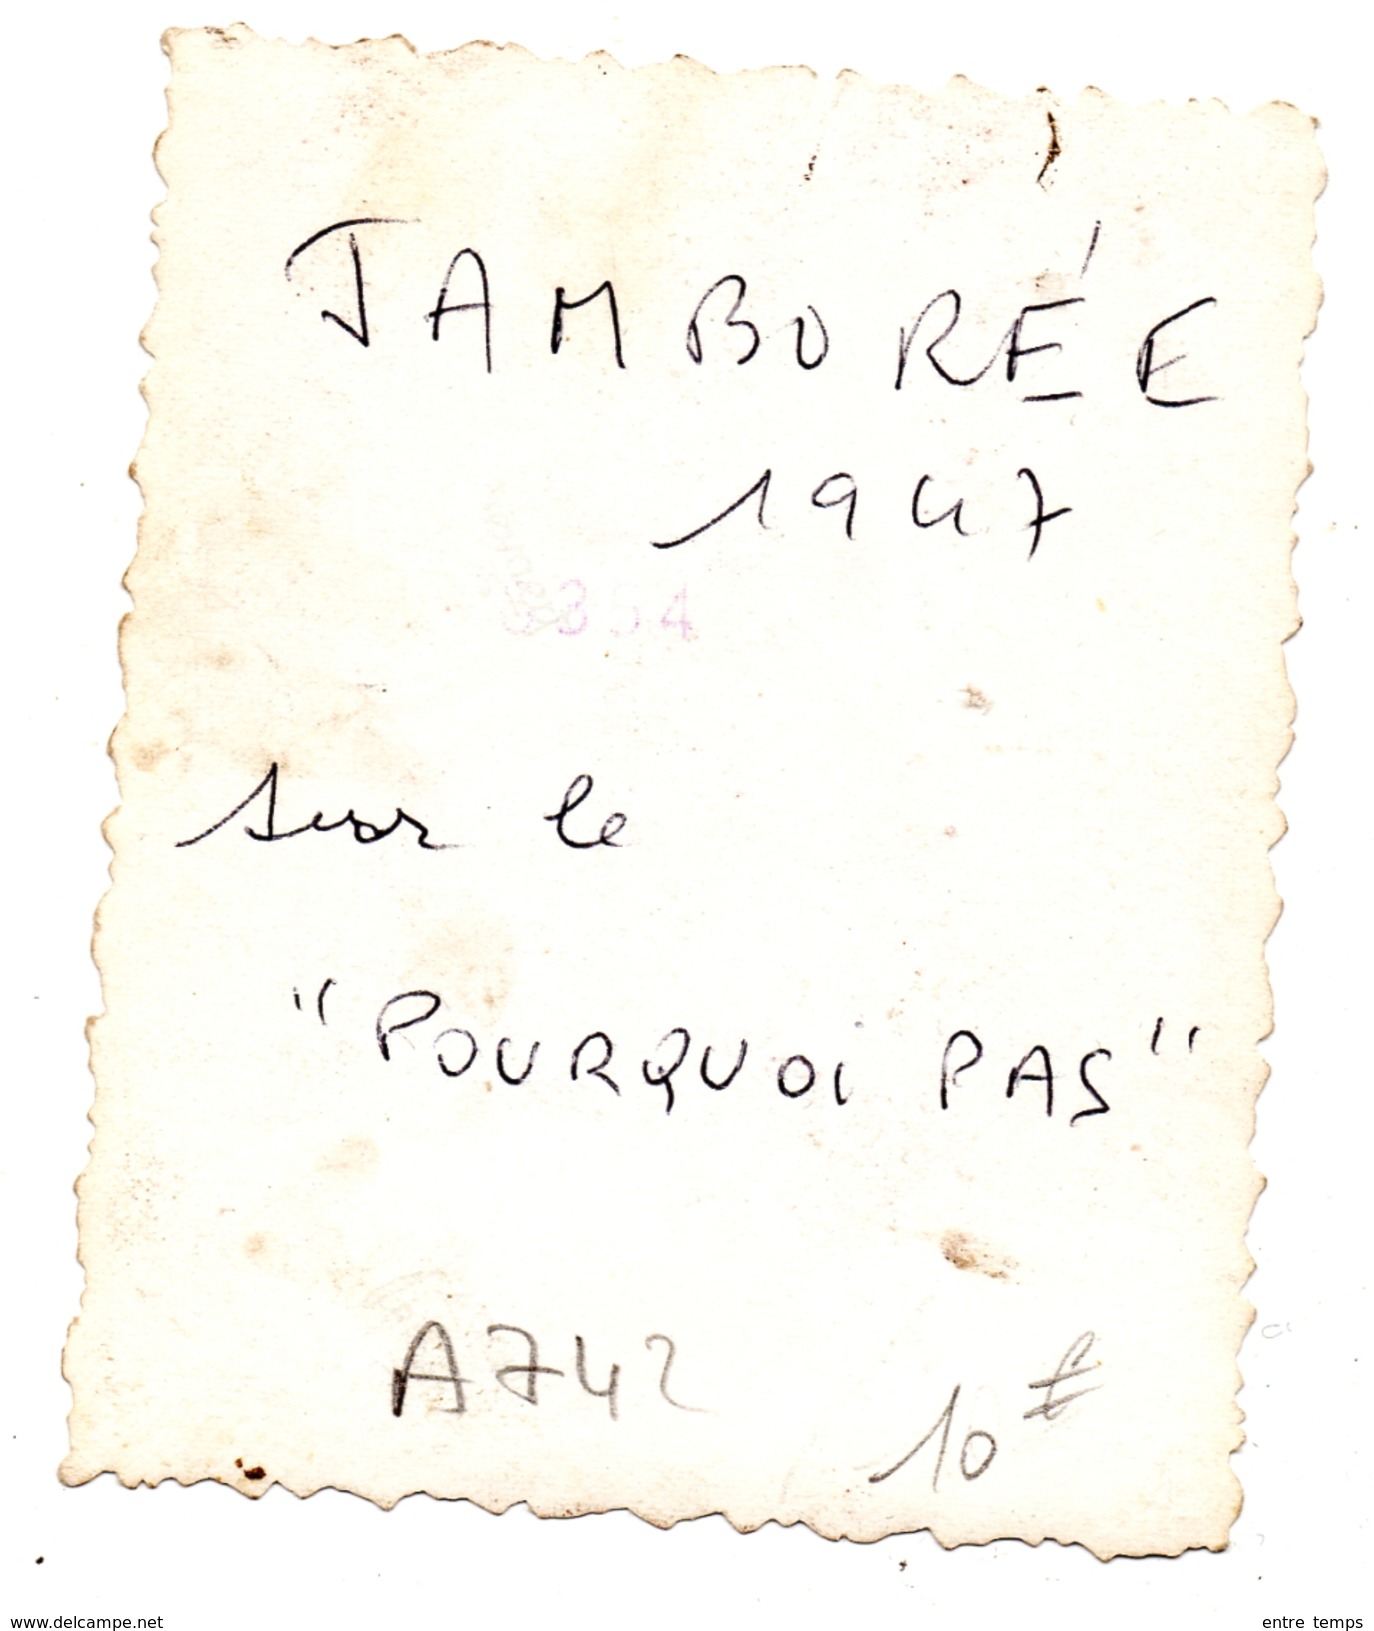 JAMBORÉE
1947
354
sur le
"POURQUOI PAS"
A742
10 F
www.delcampe.net
entre temps